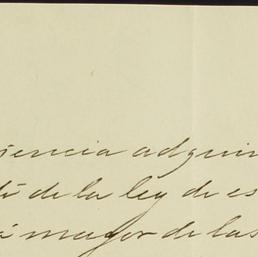 iencia adquir
tí de la ley de es
á mayor de las